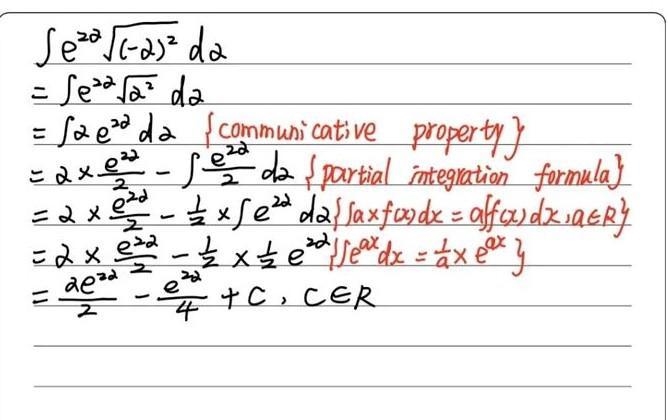 ∫e^{2a}√(-a)² da
= ∫e^{2a}√a² da
= ∫a e^{2a} da {communicative property}
= a × e^{2a}/2 - ∫e^{2a}/2 da {partial integration formula}
= a × e^{2a}/2 - 1/2 × ∫e^{2a} da {∫a×f(x)dx = a∫f(x)dx, a∈R}
= a × e^{2a}/2 - 1/2 × 1/2 e^{2a} {∫e^{ax}dx = 1/a × e^{ax}}
= ae^{2a}/2 - e^{2a}/4 + C, C∈R